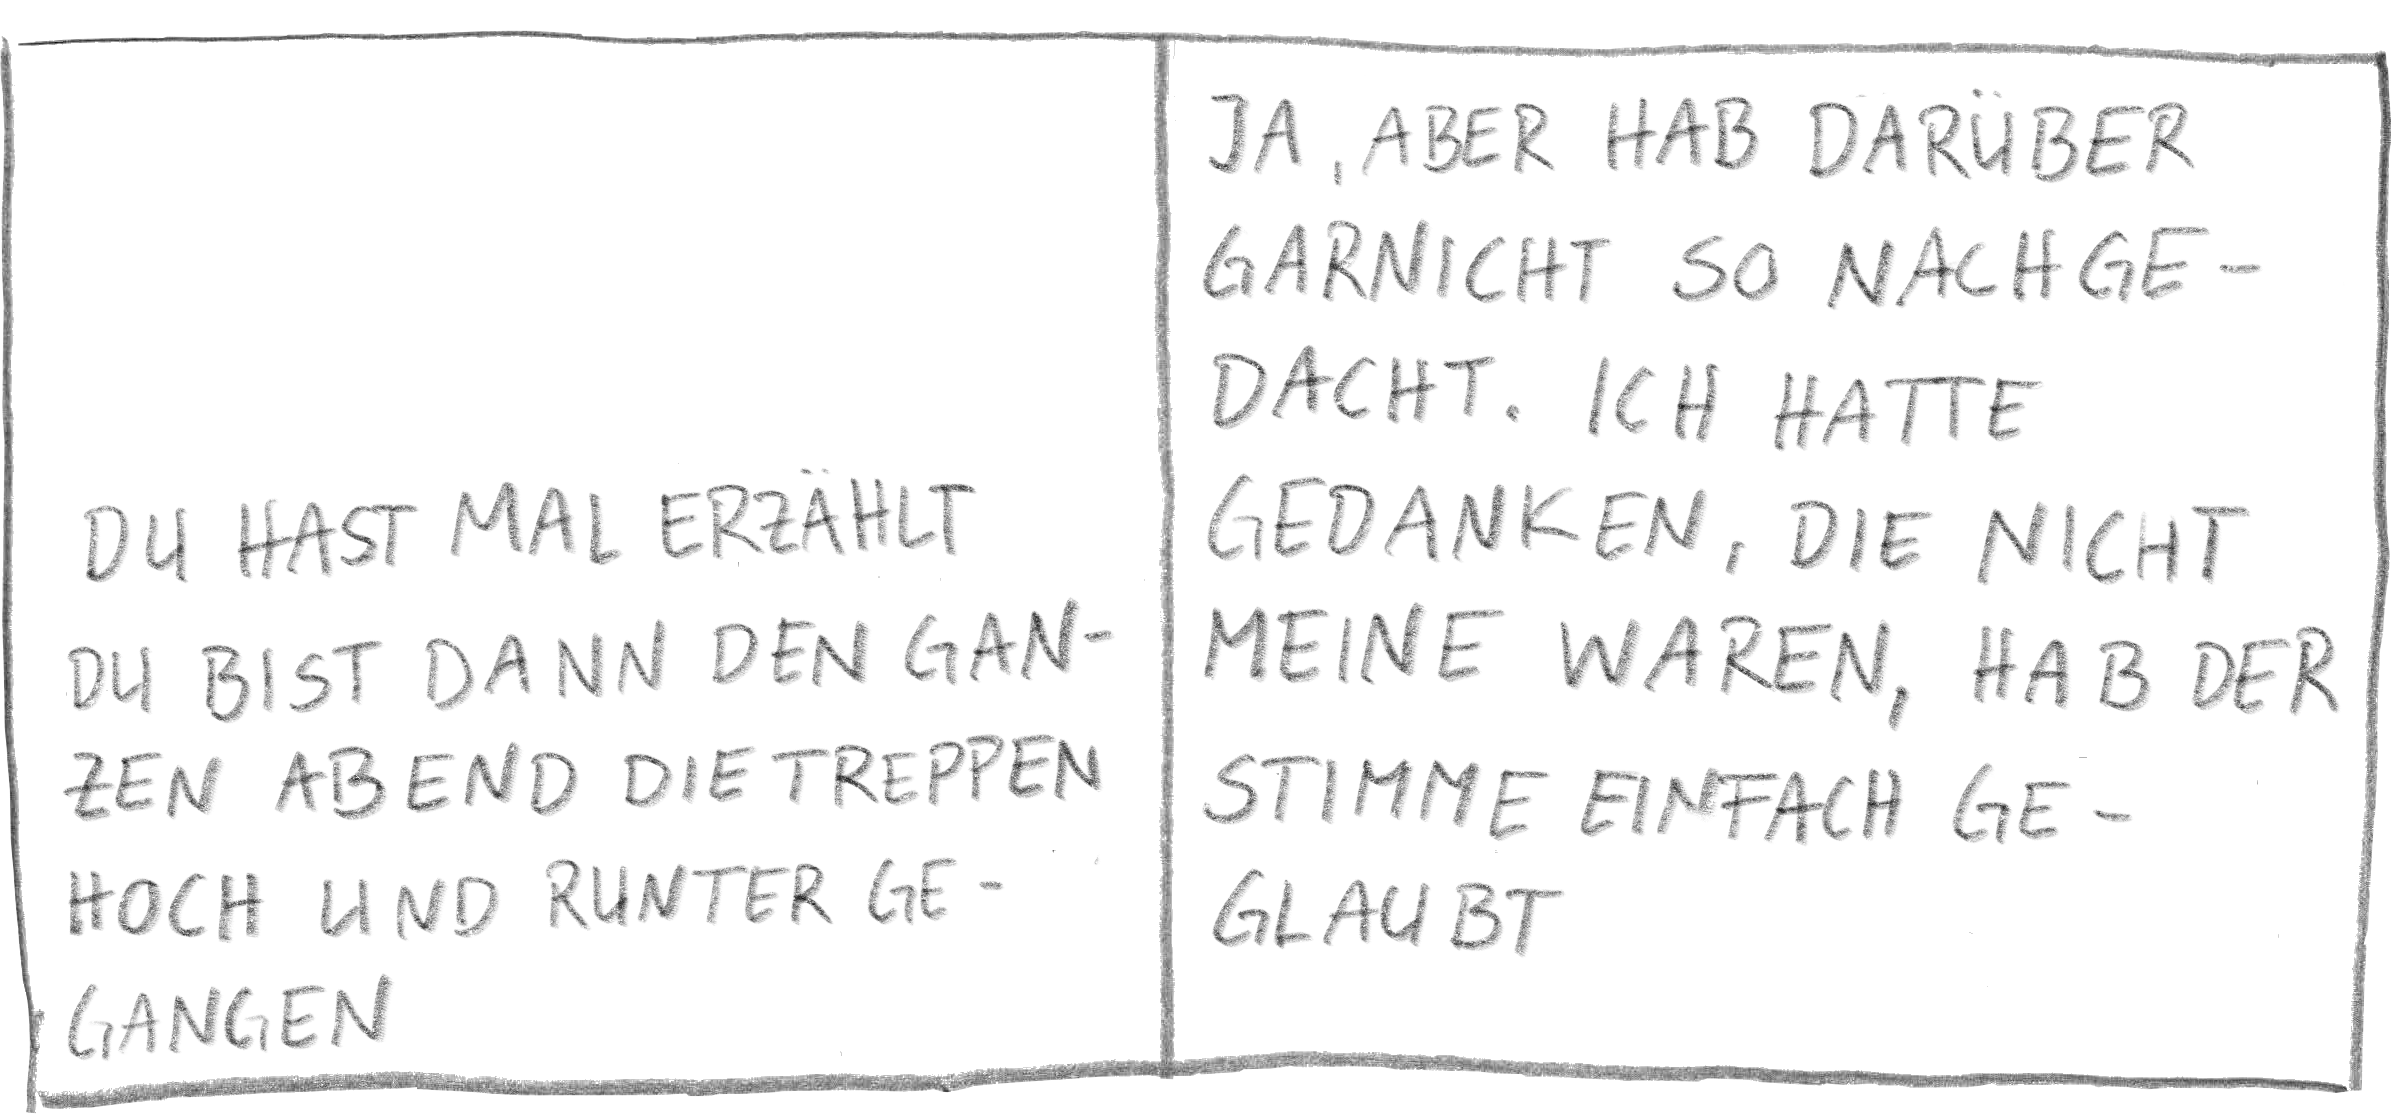 DU HAST MAL ERZÄHLT
DU BIST DANN DEN GAN-
ZEN ABEND DIE TREPPEN
HOCH UND RUNTER GE-
GANGEN
JA, ABER HAB DARÜBER
GARNICHT SO NACHGE-
DACHT. ICH HATTE
GEDANKEN, DIE NICHT
MEINE WAREN, HAB DER
STIMME EINFACH GE-
GLAUBT